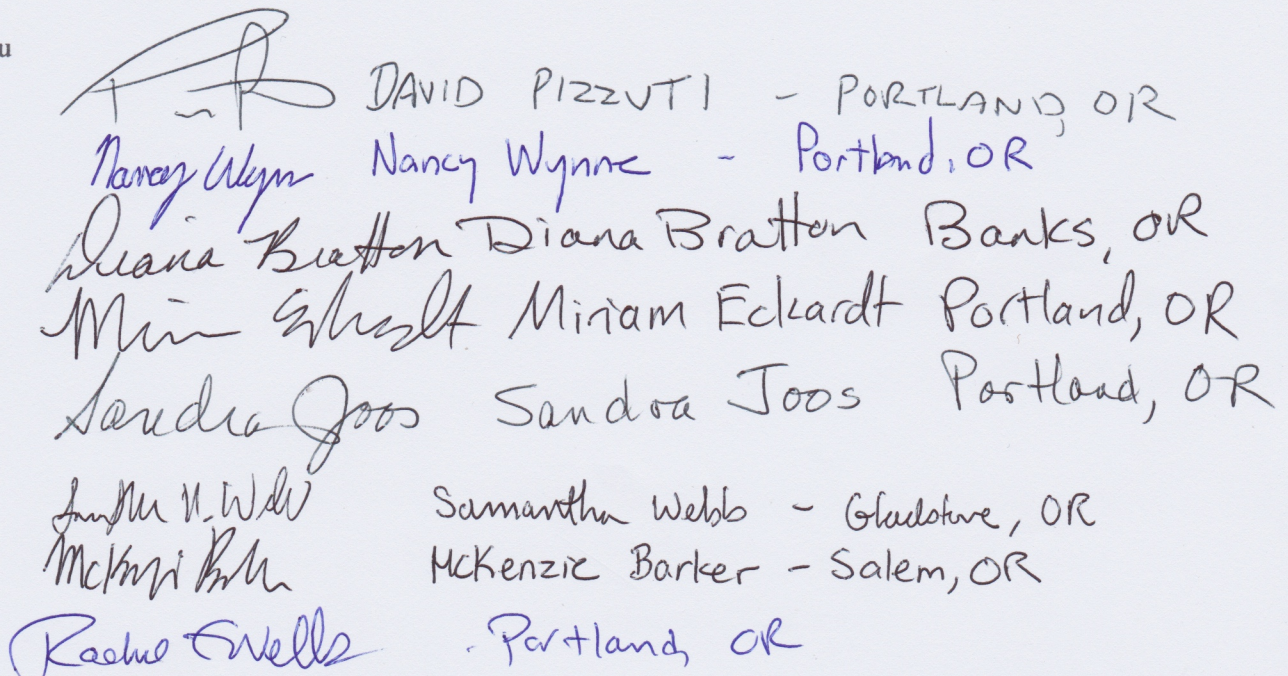 u
DAVID PIZZUTI - PORTLAND, OR
Nancy Wynne Nancy Wynne - Portland, OR
Diana Bratton Diana Bratton Banks, OR
Miriam Eckardt Portland, OR
Sandra Joos Sandra Joos Portland, OR
Samantha Webb - Gladstone, OR
McKenzie Barker - Salem, OR
Rachel E Wells - Portland, OR